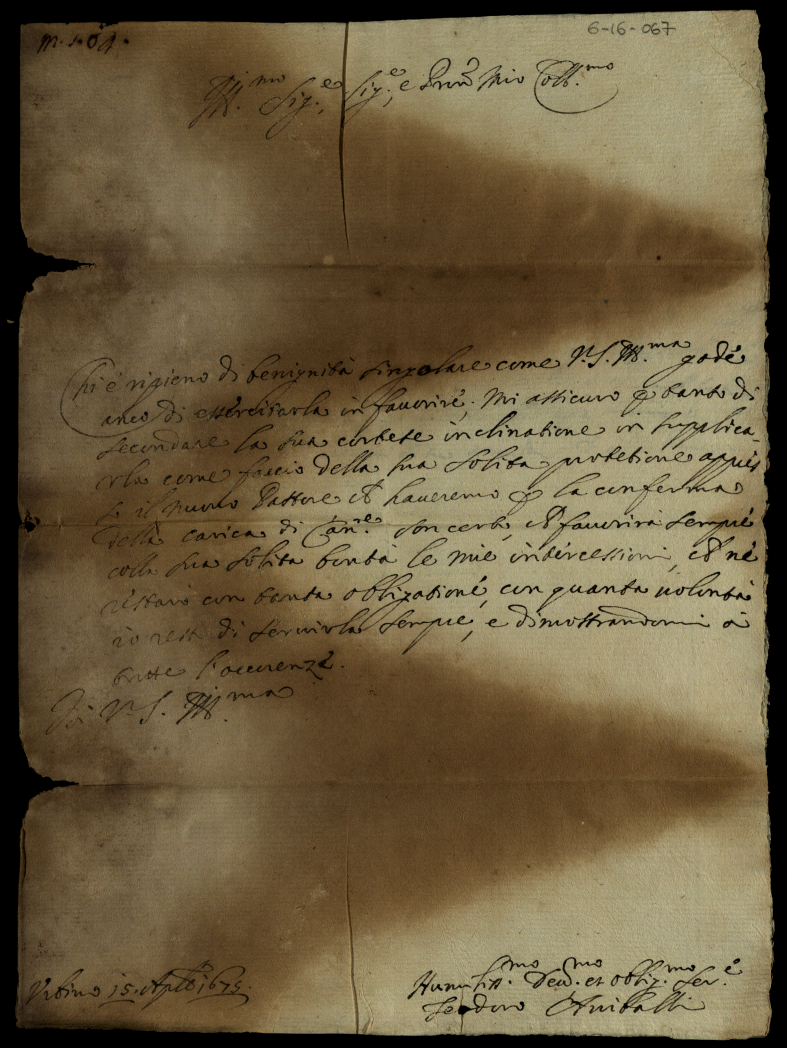 6-16-067
Ill.mo Sig.e, Sig.e, e Prōn Mio Coll.mo
Chi é ripieno di benignità singolare come V. S. Ill.ma gode
anco di essercitarla in favorire. Mi assicuro p tanto di
secondare la sua cortese inclinatione in supplica
rla come faccio della sua solita protetione appres
so il nuovo Pastore ch haveremo p la conferma
della carica di Can.re Son certo, ch favorirà sempre
colla sua solita bontà le mie intercessioni, ch né
restarò con tanta obligatione, con quanta volontà
io resto di servirla sempre, e dimostrandomi à
tutte l'occorenze.
Di V. S. Ill.ma
Urbino 15. 1675.
Humiliss.mo Dev.mo et oblig.mo Ser.e
Teodoro Aniballi